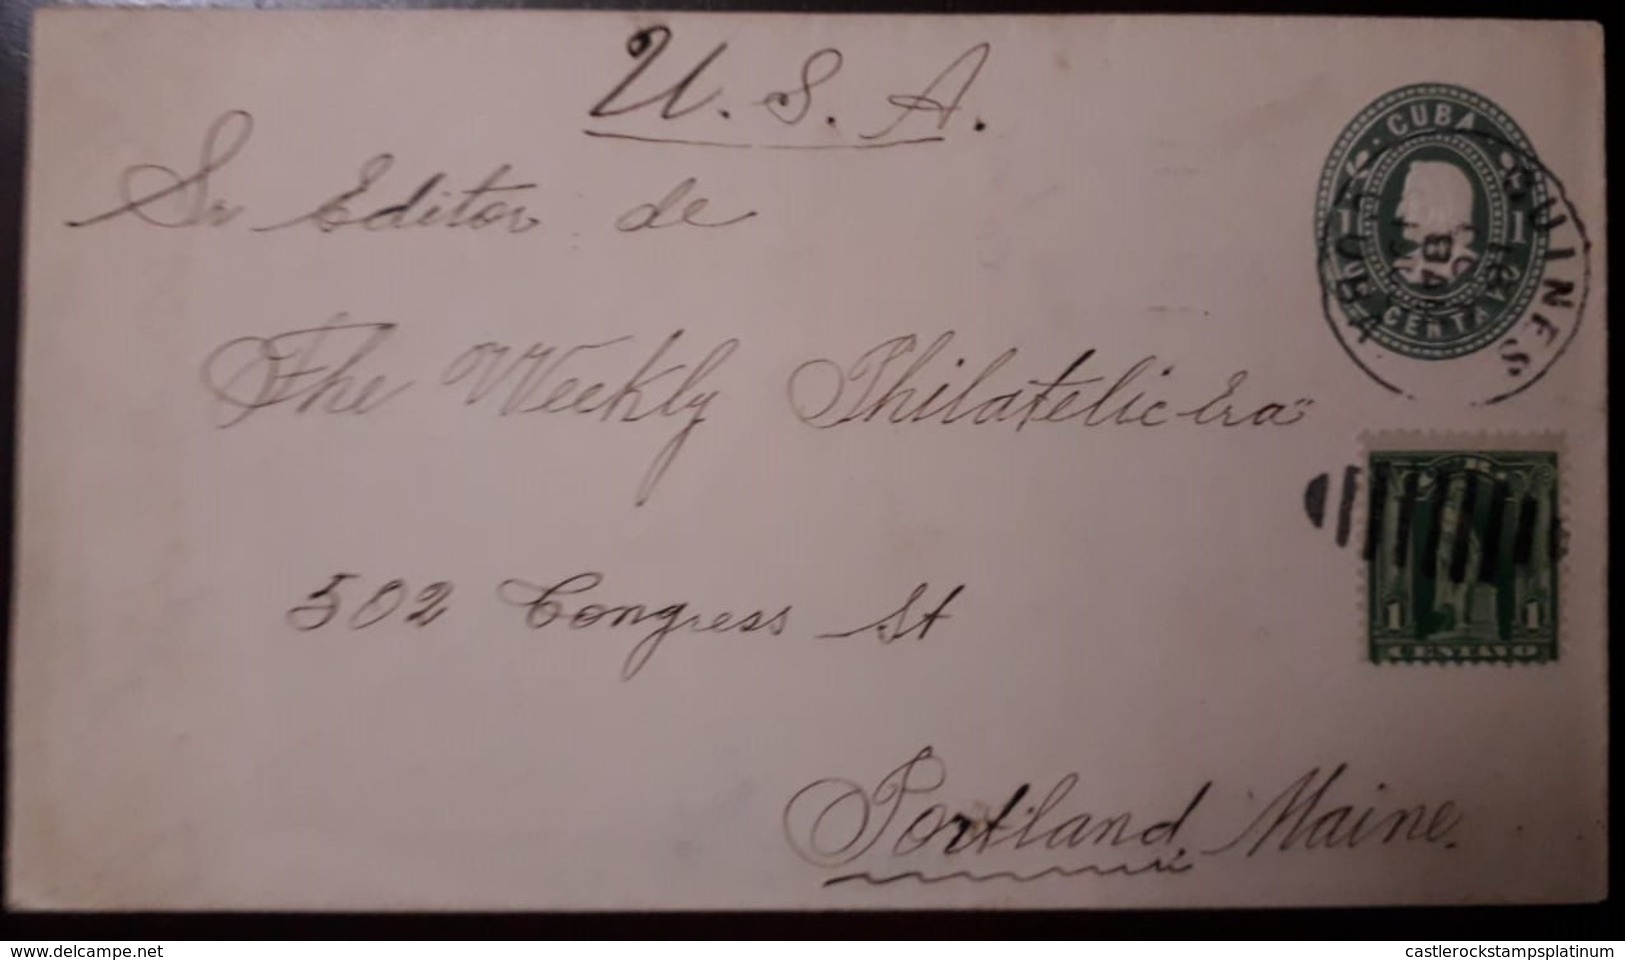 U. S. A.
CUBA
1 1
UN CENTAVO
GUINES
Sr Editor de
The Weekly Philatelic Era"
502 Congress St
1 1
CENTAVO
Portland, Maine.
delcampe.net
castlerockstampsplatinum